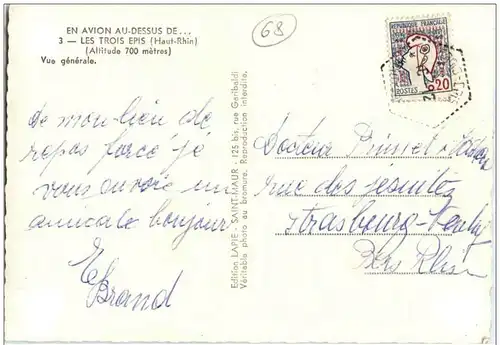 EN AVION AU-DESSUS DE...
3 — LES TROIS EPIS (Haut-Rhin)
(Altitude 700 mètres)
Vue générale.
68
REPUBLIQUE FRANCAISE
POSTES 0,20
de mon lieu de
repos forcé je
vous envoie un
amicale bonjour
E Brand
Edition LAPIE - SAINT-MAUR - 125 bis, rue Garibaldi
Véritable photo au bromure. Reproduction interdite.
Docteur
rue des jesuites
Strasbourg-
Bas Rhin